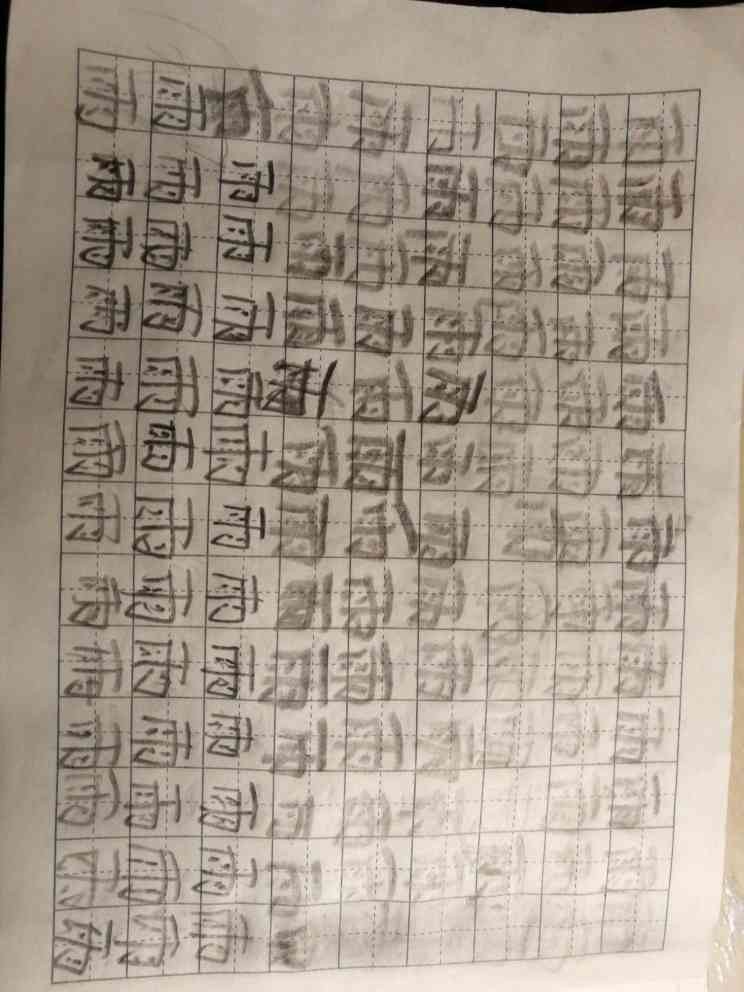 雨雨雨雨雨雨雨雨雨雨雨雨
雨雨雨雨雨雨雨雨雨雨雨雨
雨雨雨雨雨雨雨雨
雨雨雨雨雨雨雨雨雨雨
雨雨雨雨雨雨雨雨雨雨雨
雨雨雨雨雨雨雨雨雨雨雨雨雨
雨雨雨雨雨雨雨雨雨雨雨雨
雨雨雨雨雨雨雨雨雨雨雨雨雨
雨雨雨雨雨雨雨雨雨雨雨雨雨